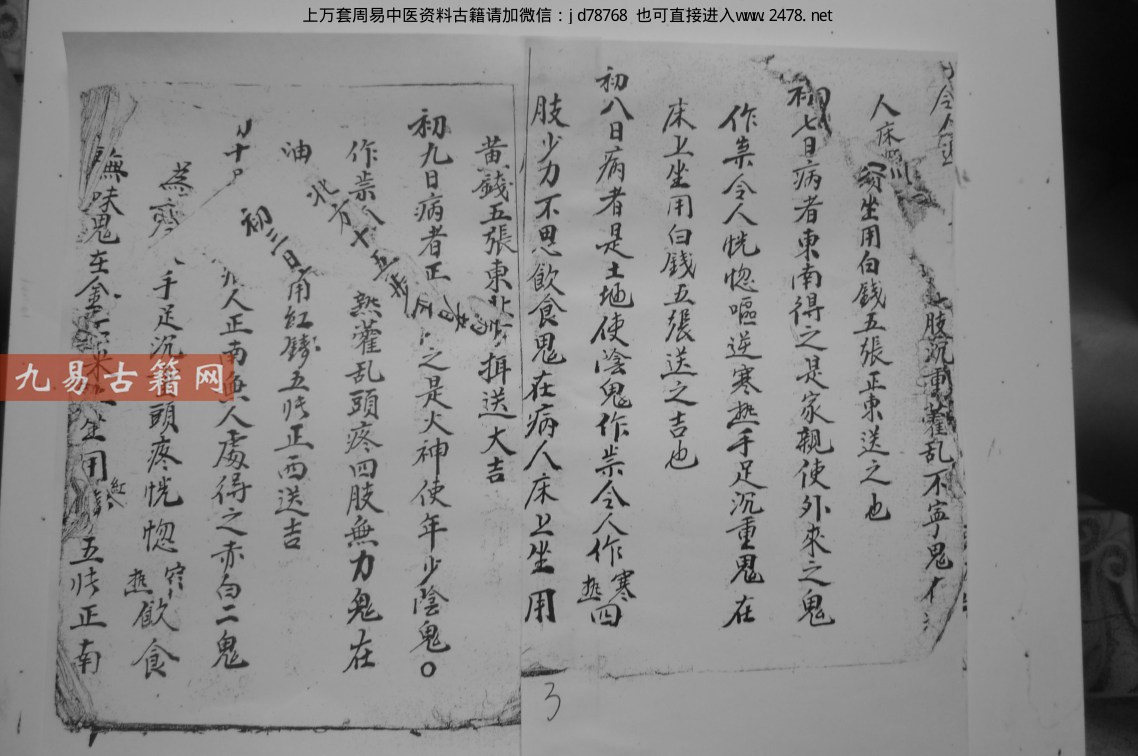 上万套周易中医资料古籍请加微信：jd78768 也可直接进入www.2478.net
令人
肢沉重藿乱不寧鬼
人床 坐用白錢五張正東送之也
初七日病者東南得之是家親使外來之鬼
作祟令人恍惚嘔逆寒熱手足沉重鬼在
床上坐用白錢五張送之吉也
初八日病者是土地使陰鬼作祟令人作寒熱四
肢少力不思飲食鬼在病人床上坐用
黄錢五張東北 揖送大吉
初九日病者正 之是火神使年少陰鬼
作祟 熱藿乱頭疼四肢無力鬼在
油
北方 十五步
初三日用紅錢五张正西送吉
人正南無人處得之赤白二鬼
手足沉 頭疼恍惚寒熱飲食
無味鬼在 坐用紅錢五张正南
九易古籍网
3